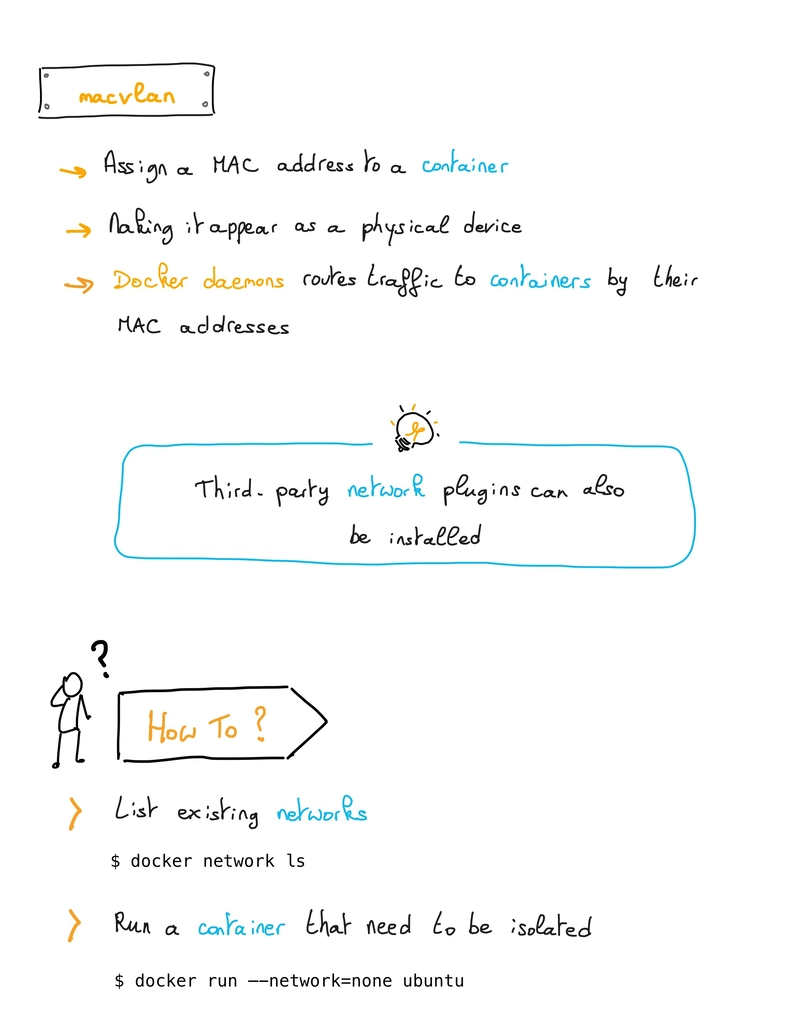 macvlan
→ Assign a MAC address to a container
→ Making it appear as a physical device
→ Docker daemons routes traffic to containers by their
MAC addresses
Third-party network plugins can also
be installed
?
How To ?
> List existing networks
$ docker network ls
> Run a container that need to be isolated
$ docker run --network=none ubuntu